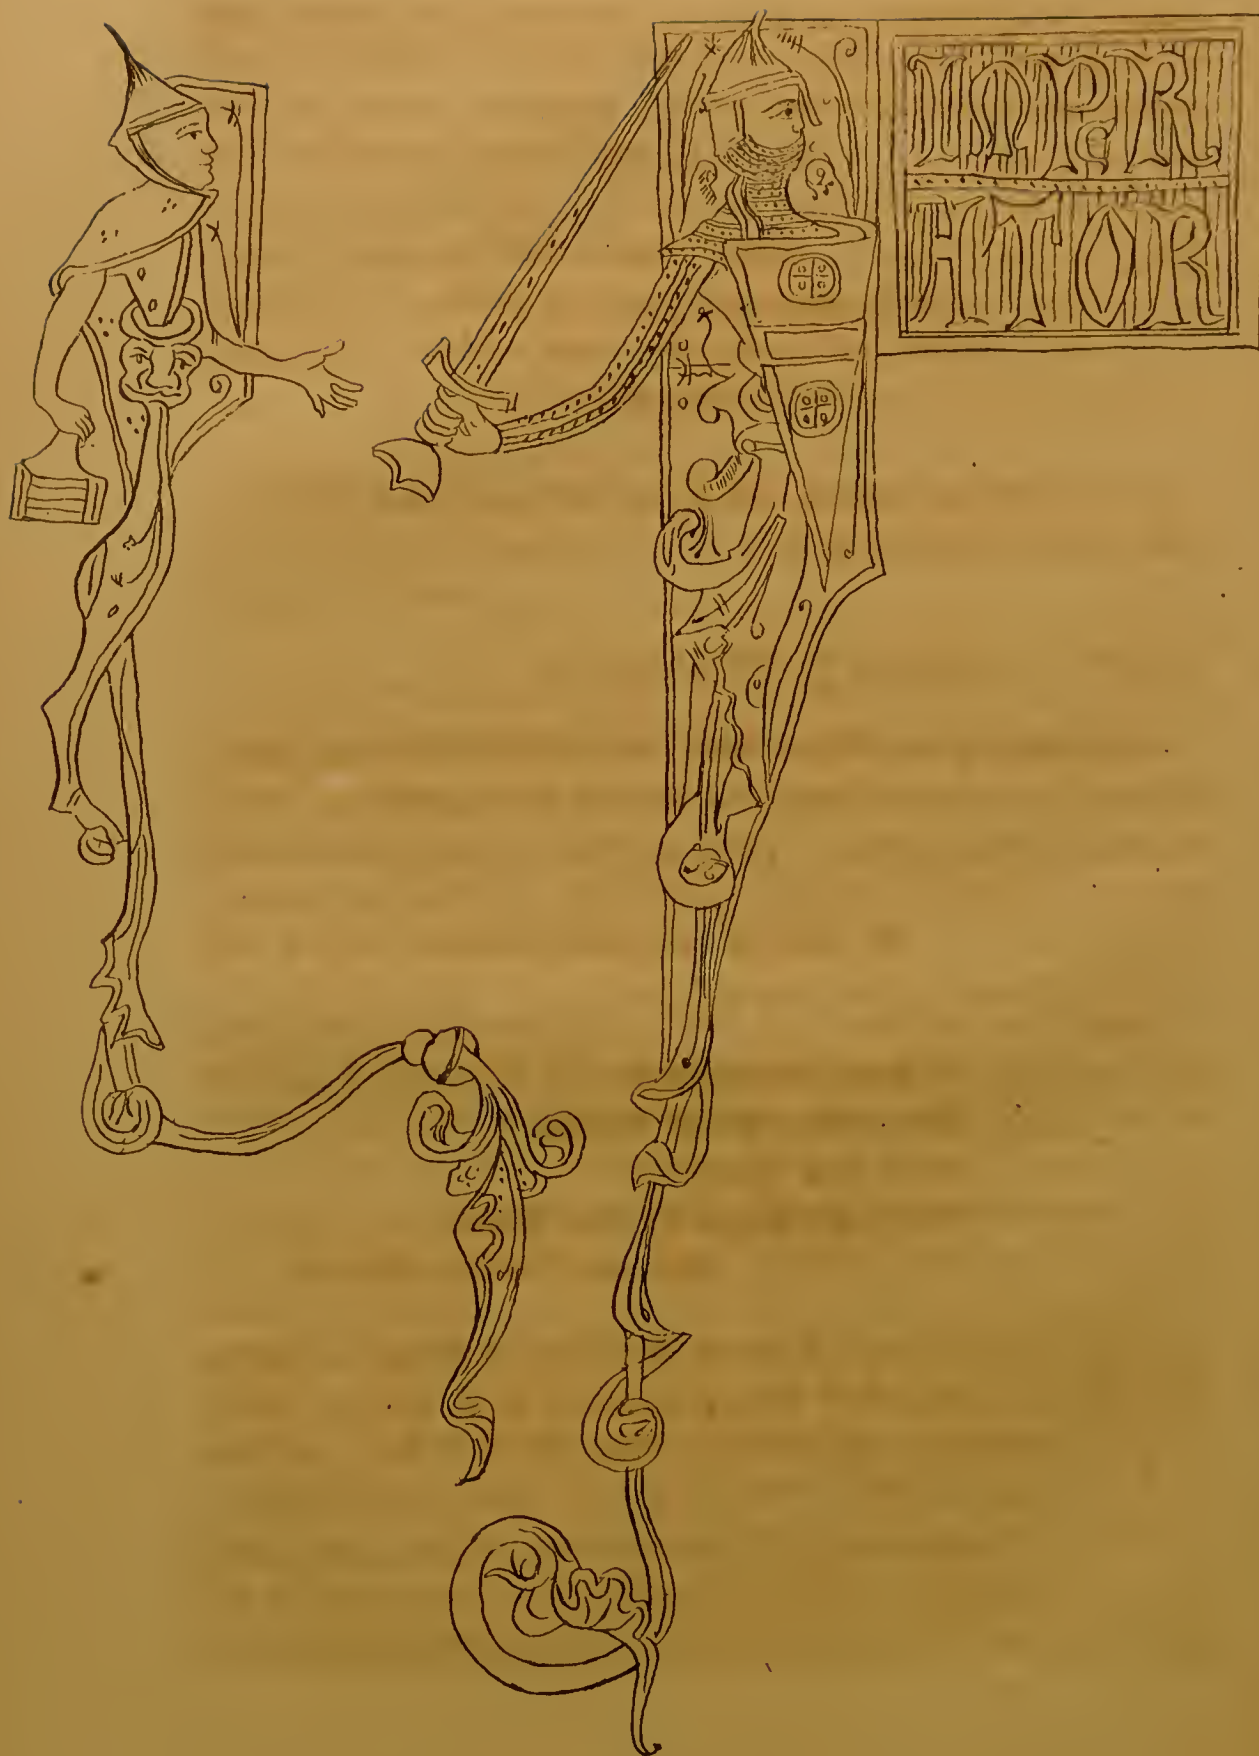 IMPER
ATOR